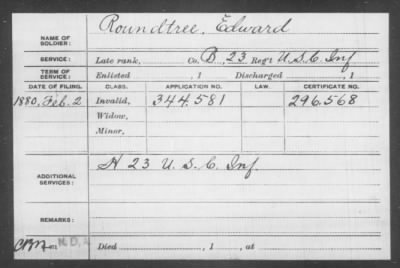 NAME OF SOLDIER: Roundtree, Edward
SERVICE: Late rank, Co. B, 23 Reg't U.S.C. Inf
TERM OF SERVICE: Enlisted , 1 Discharged , 1
DATE OF FILING. CLASS. APPLICATION NO. LAW. CERTIFICATE NO.
1880, Feb. 2 Invalid, 344.581 296.568
Widow,
Minor,
ADDITIONAL SERVICES: H 23 U.S.C. Inf.
REMARKS:
Died , 1 , at